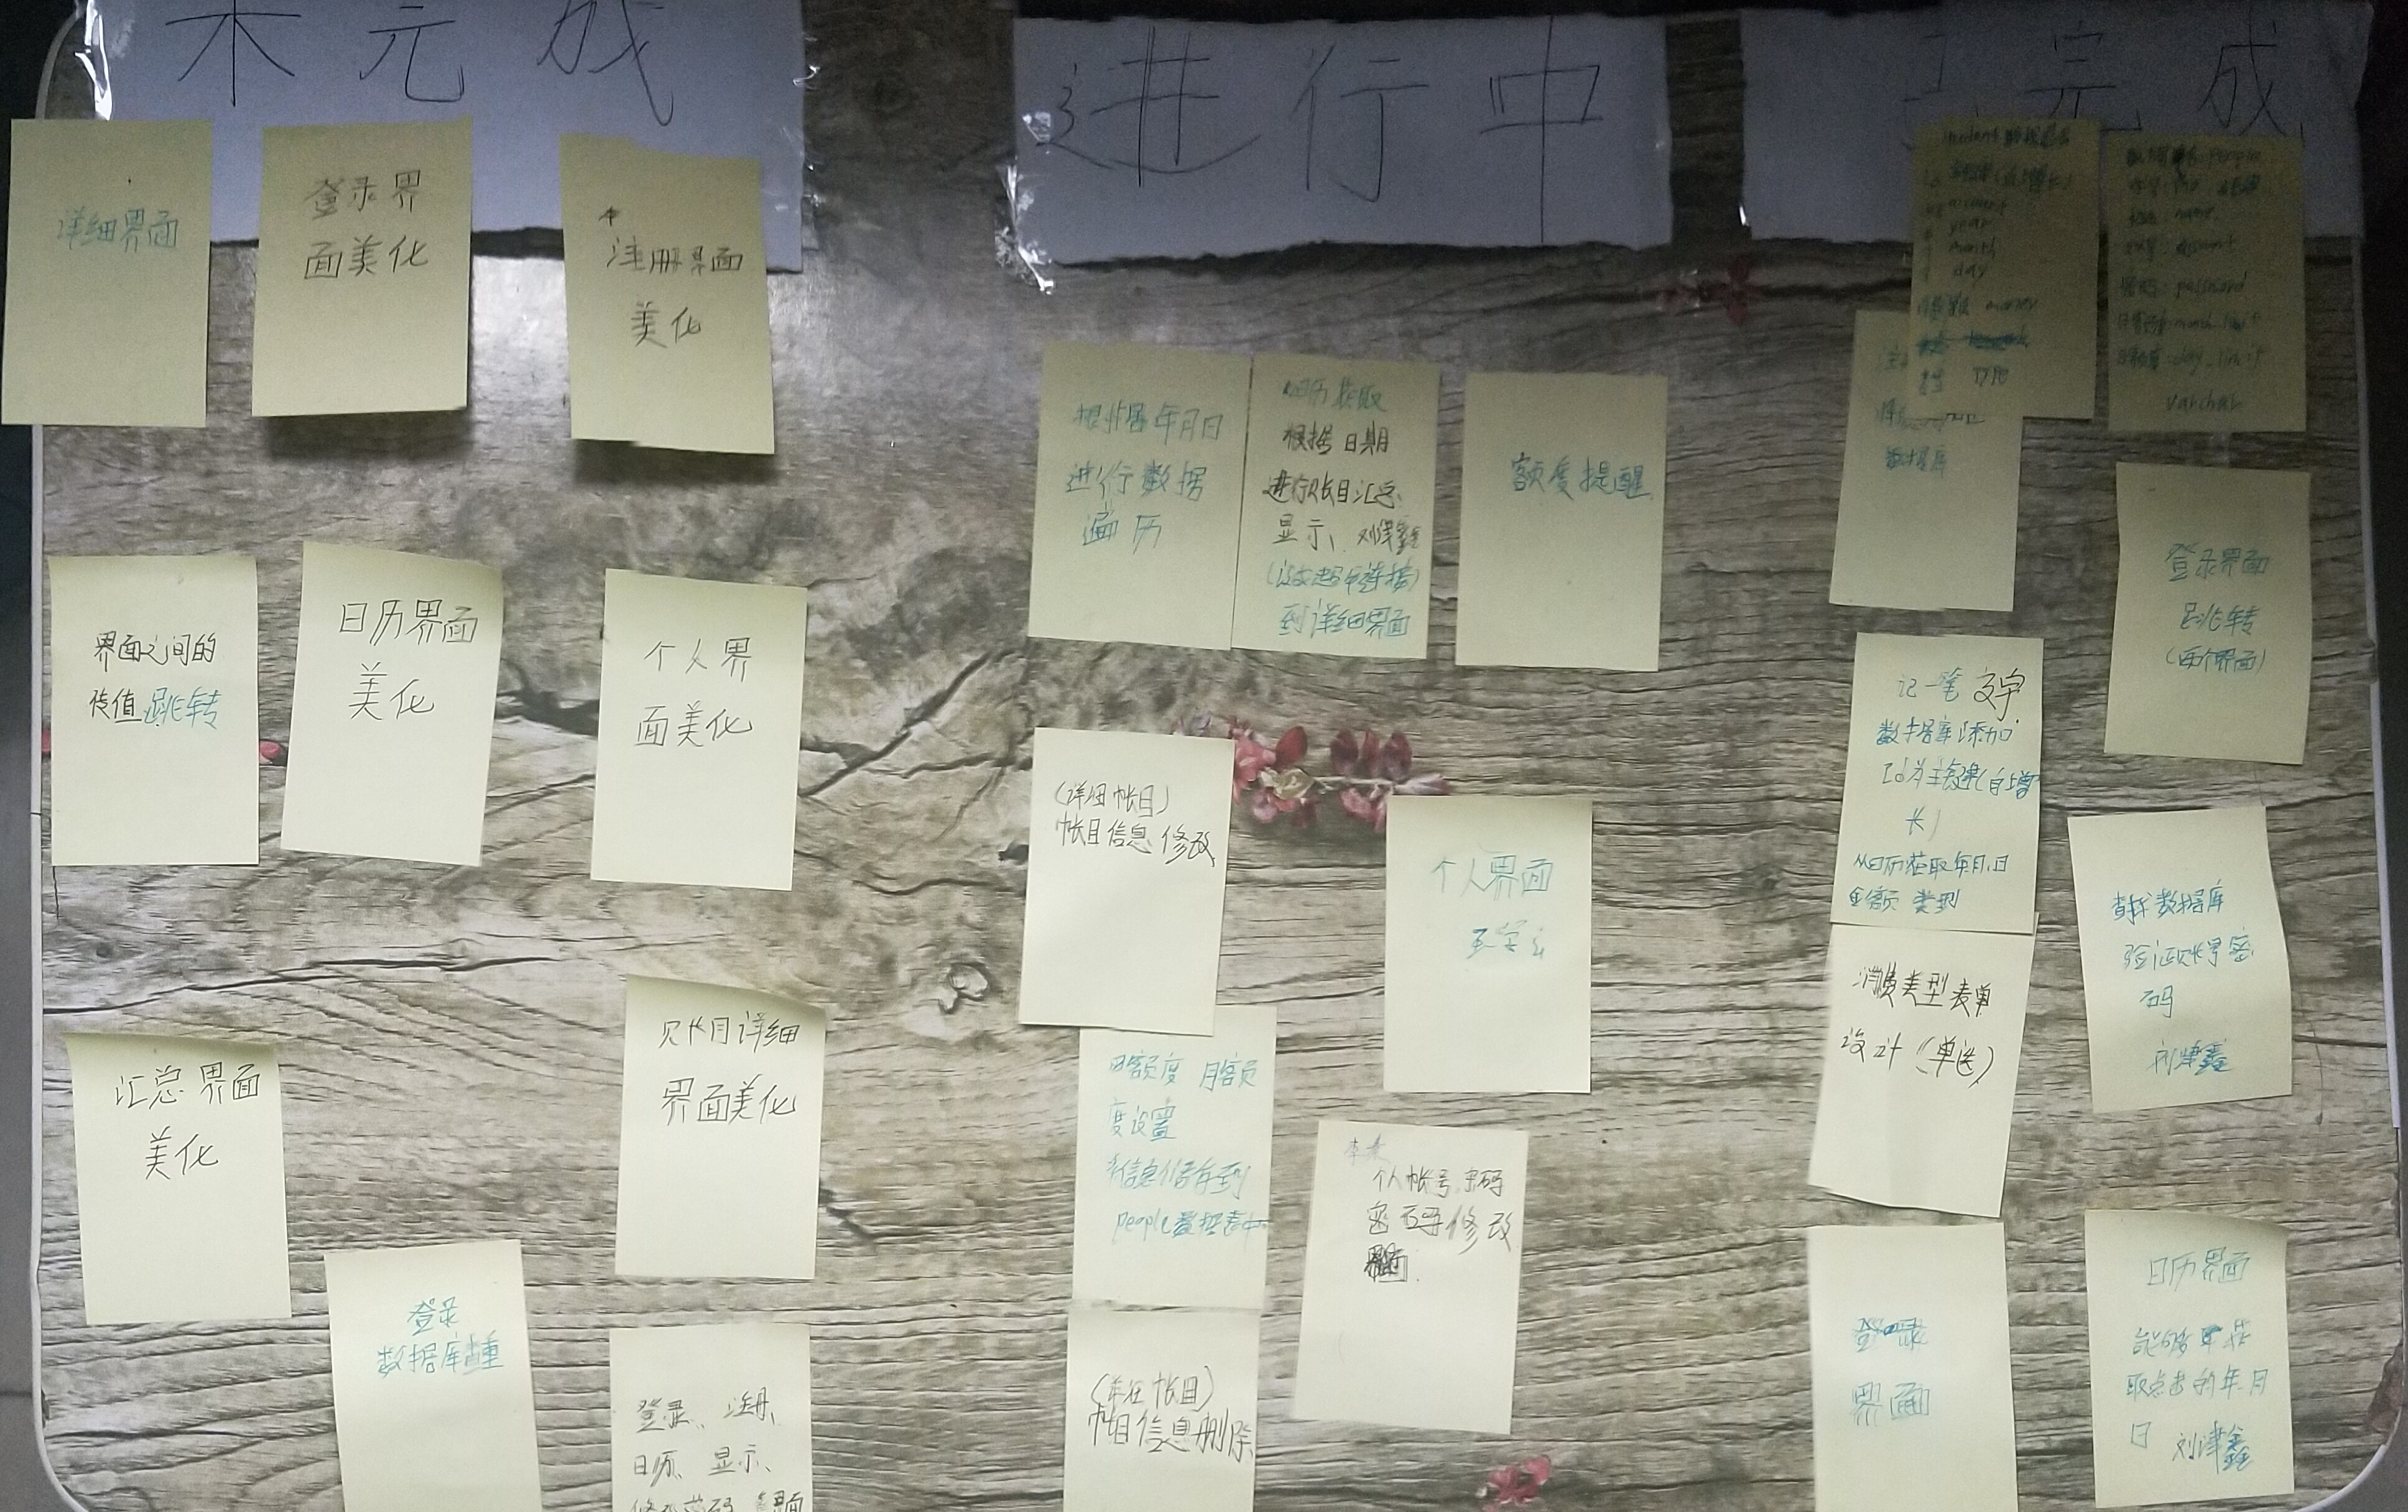 未完成
进行中
已完成
详细界面
登录界
面美化
注册界面
美化
界面之间的
传值跳转
日历界面
美化
个人界
面美化
汇总界面
美化
账目详细
界面美化
登录
数据库
登录、注册、
日历、显示、
根据年月日
进行数据
遍历
日历获取
根据日期
进行账目汇总
显示、刘津鑫
到详细界面
额度提醒
(详细帐目)
帐目信息修改
个人界面
日额度 月额
度设置
people数据表中
个人帐号密码
密码修改
帐目)
帐目信息删除
主键(自增长)
year
month
day
money
数据库
people
name
password
month_limit
day_limit
varchar
登录界面
跳转
(两个界面)
记一笔 文字
数据库添加
Id为主键(自增
长)
从日历获取年.月.日
金额 类型
消费类型表单
设计(单选)
查找数据库
验证账号密
码
刘津鑫
登录
界面
日历界面
能够获
取点击的年.月
日 刘津鑫